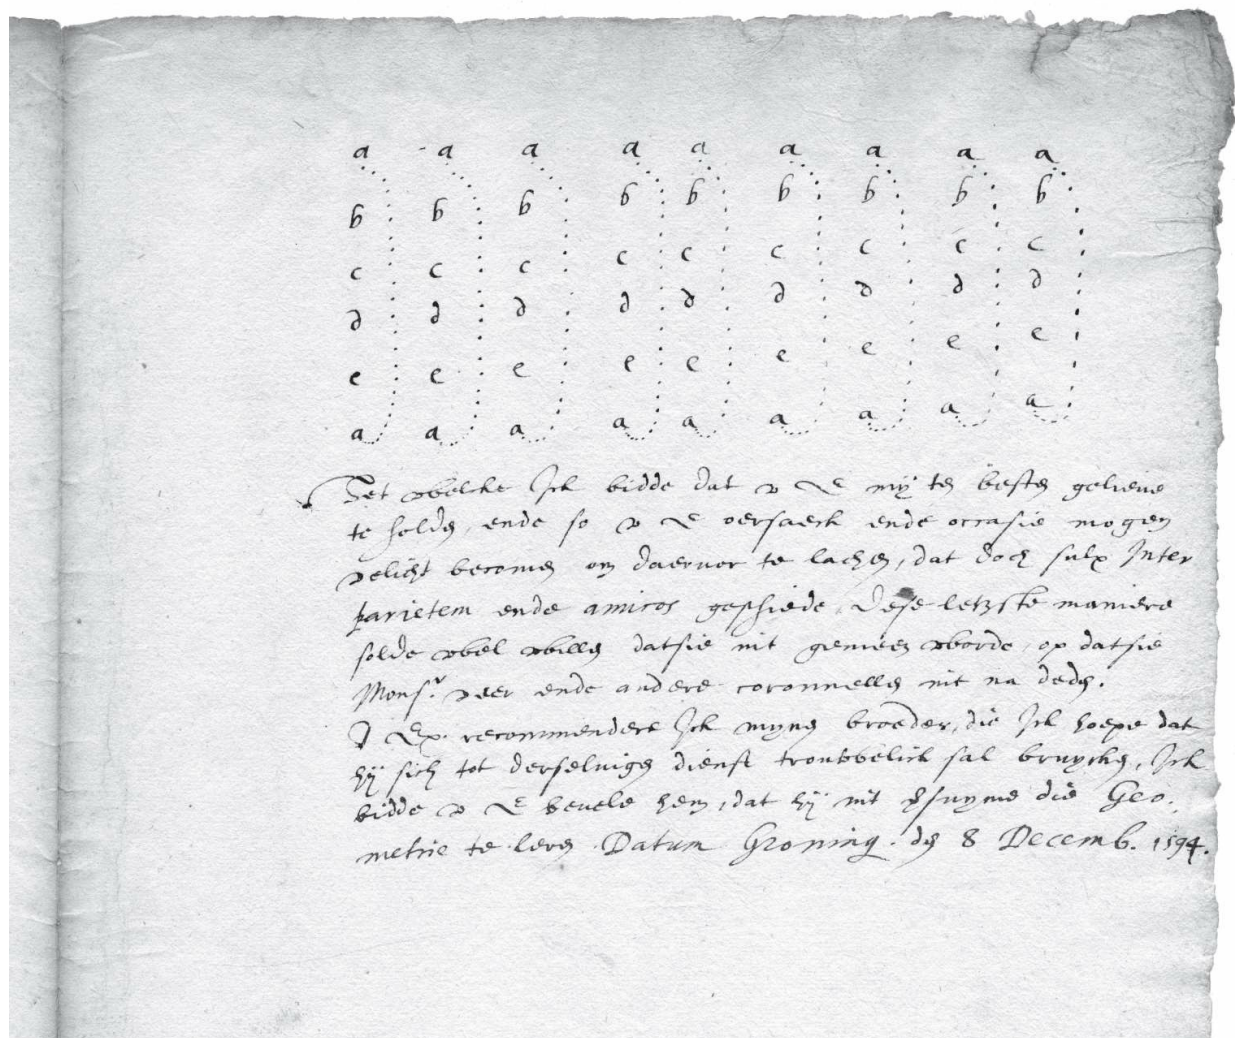 a a a a a a a a a
b b b b b b b b b
c c c c c c c c c
d d d d d d d d d
e e e e e e e e e
a a a a a a a a a
Het welcke Ick bidde dat v E my ten besten gelieve
te holden, ende so v E oersaeck ende occasie mogen
velicht becomen om daervor te lachen, dat doch sulx Inter
parietem ende amicos geschiede, dese letzste maniere
solde wel willen datsie nit gemeen worde, op datsie
Monsr. veer ende andere coronnellen nit na deden.
V Ex. recommendere Ick mynen broeder, die Ick hoepe dat
hij sich tot derselvigen dienst trouwelick sal bruycken, Ick
bidde v E bevele hem, dat hij nit versuyme die Geo-
metrie te leren. Datum Groning. den 8 Decemb. 1594.